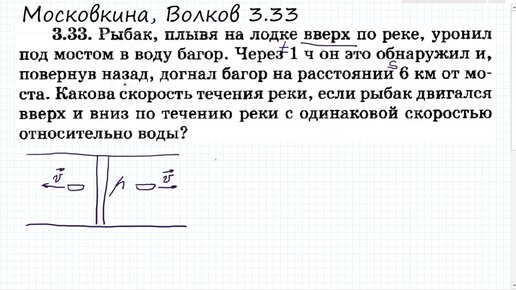 Московкина, Волков 3.33
3.33. Рыбак, плывя на лодке вверх по реке, уронил
под мостом в воду багор. Через 1 ч он это обнаружил и,
повернув назад, догнал багор на расстоянии 6 км от мо-
ста. Какова скорость течения реки, если рыбак двигался
вверх и вниз по течению реки с одинаковой скоростью
относительно воды?
t
S
v v